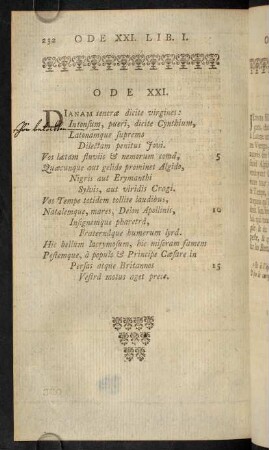 232 ODE XXI. LIB. I.
ODE XXI.
DIANAM teneræ dicite virgines:
Intonsum, pueri, dicite Cynthium,
Latonamque supremo
Dilectam penitus Jovi.
Vos lætam fluviis & nemorum comâ, 5
Quæcunque aut gelido prominet Algido,
Nigris aut Erymanthi
Sylvis, aut viridis Cragi.
Vos Tempe totidem tollite laudibus,
Natalemque, mares, Delon Apollinis, 10
Insignemque pharetrâ,
Fraternâque humerum lyrâ.
Hic bellum lacrymosum, hic miseram famem
Pestemque, à populo & Principe Cæsare in
Persas atque Britannos 15
Vestrâ motus aget prece.